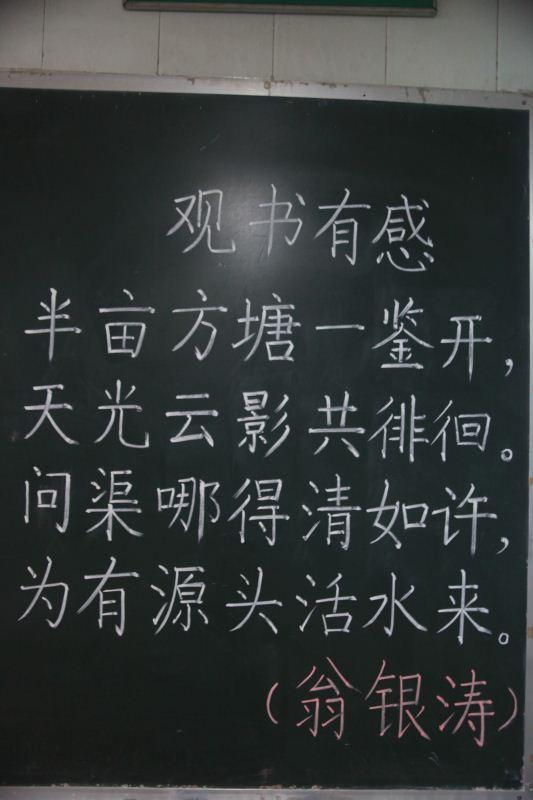 观书有感
半亩方塘一鉴开,
天光云影共徘徊。
问渠哪得清如许,
为有源头活水来。
(翁银涛)